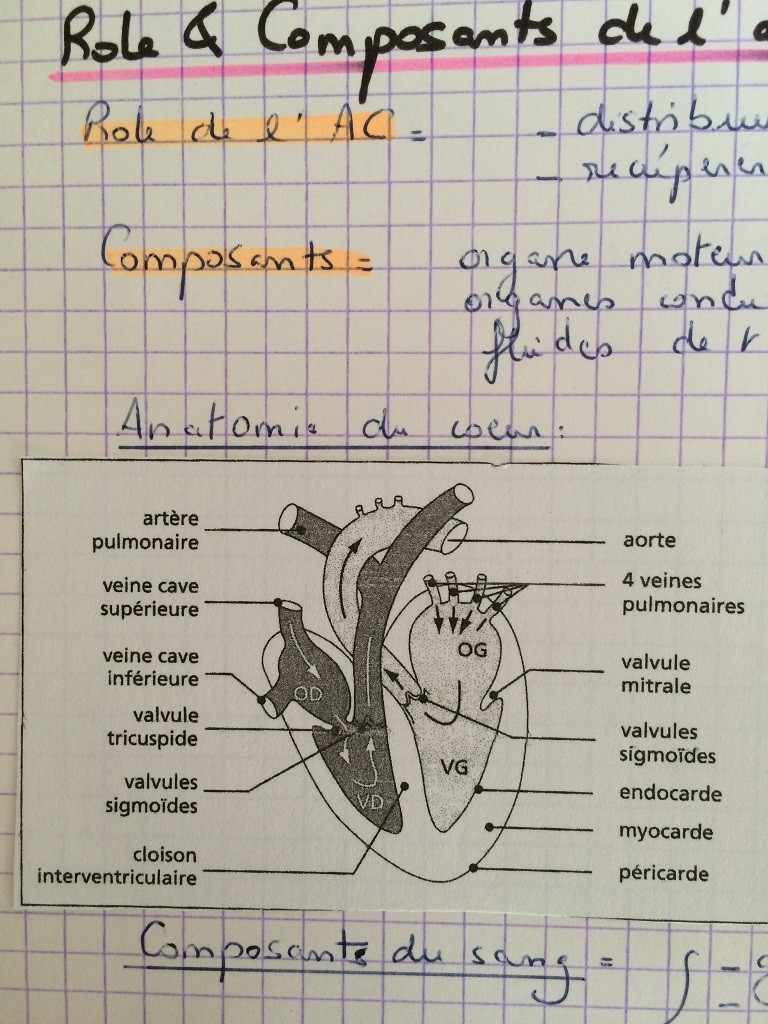 Role & Composants de l'
Role de l' AC = - distribu
- récupérer
Composants = organe moteur
organes condu
fluides de t
Anatomie du coeur :
artère
pulmonaire
aorte
veine cave
supérieure
4 veines
pulmonaires
OG
veine cave
inférieure
valvule
mitrale
OD
valvule
tricuspide
valvules
sigmoïdes
VG
valvules
sigmoïdes
VD
endocarde
myocarde
cloison
interventriculaire
péricarde
Composants du sang = -
-